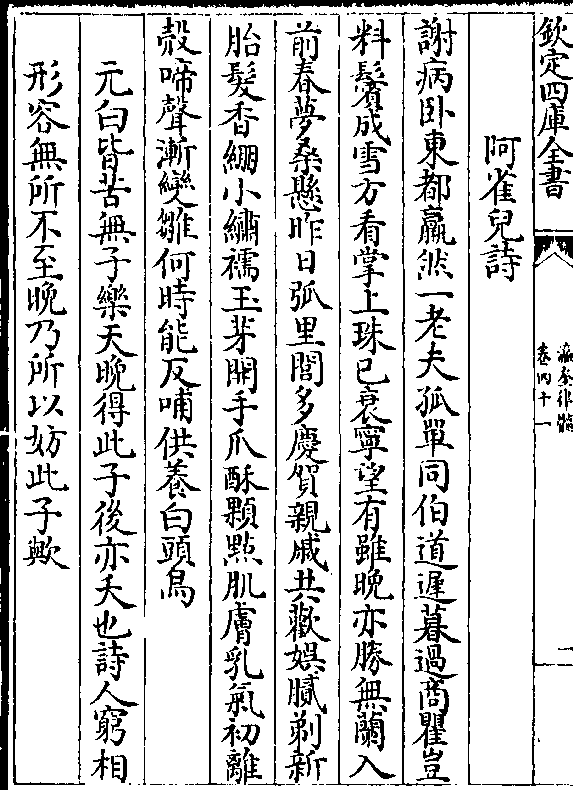 欽定四庫全書
瀛奎律髓
卷四十一
一
阿雀兒詩
謝病卧東都羸然一老夫孤單同伯道遲暮過商瞿豈
料鬢成雪方看掌上珠已衰寧望有雖晚亦勝無蘭入
前春夢桑懸昨日弧里閭多慶賀親戚共歡娱膩剃新
胎髮香綳小繡襦玉芽開手爪酥顆㸃肌膚乳氣初離
殻啼聲漸變雛何時能反哺供養白頭烏
元白皆苦無子樂天晚得此子後亦夭也詩人窮相
形容無所不至晚乃所以妨此子歟